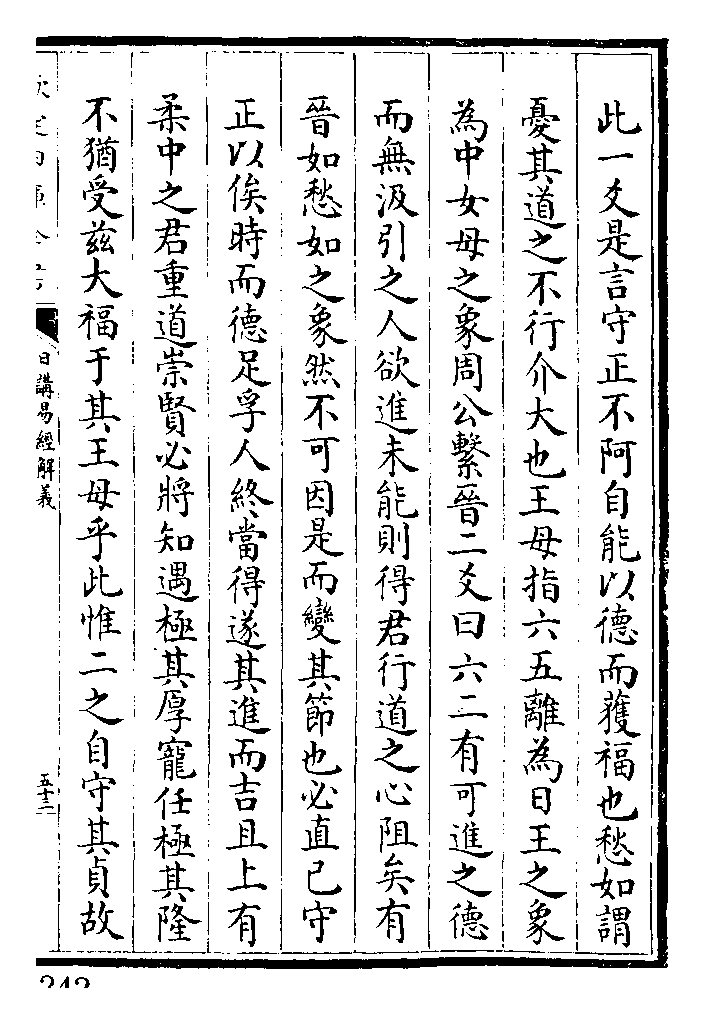 此一爻是言守正不阿自能以德而獲福也愁如謂
憂其道之不行介大也王母指六五離為日王之象
為中女母之象周公繫晉二爻曰六二有可進之德
而無汲引之人欲進未能則得君行道之心阻矣有
晉如愁如之象然不可因是而變其節也必直己守
正以俟時而德足孚人終當得遂其進而吉且上有
柔中之君重道崇賢必將知遇極其厚寵任極其隆
不猶受茲大福于其王母乎此惟二之自守其貞故
日講易經解義
五十二